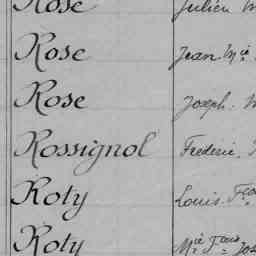 Rose Julien M
Rose Jean Mie
Rose Joseph. M
Rossignol Frederic,
Roty Louis. Fçois
Roty Mie Fçois Jos